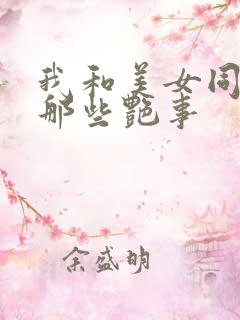 我和美女同
那些艷事
余盛明